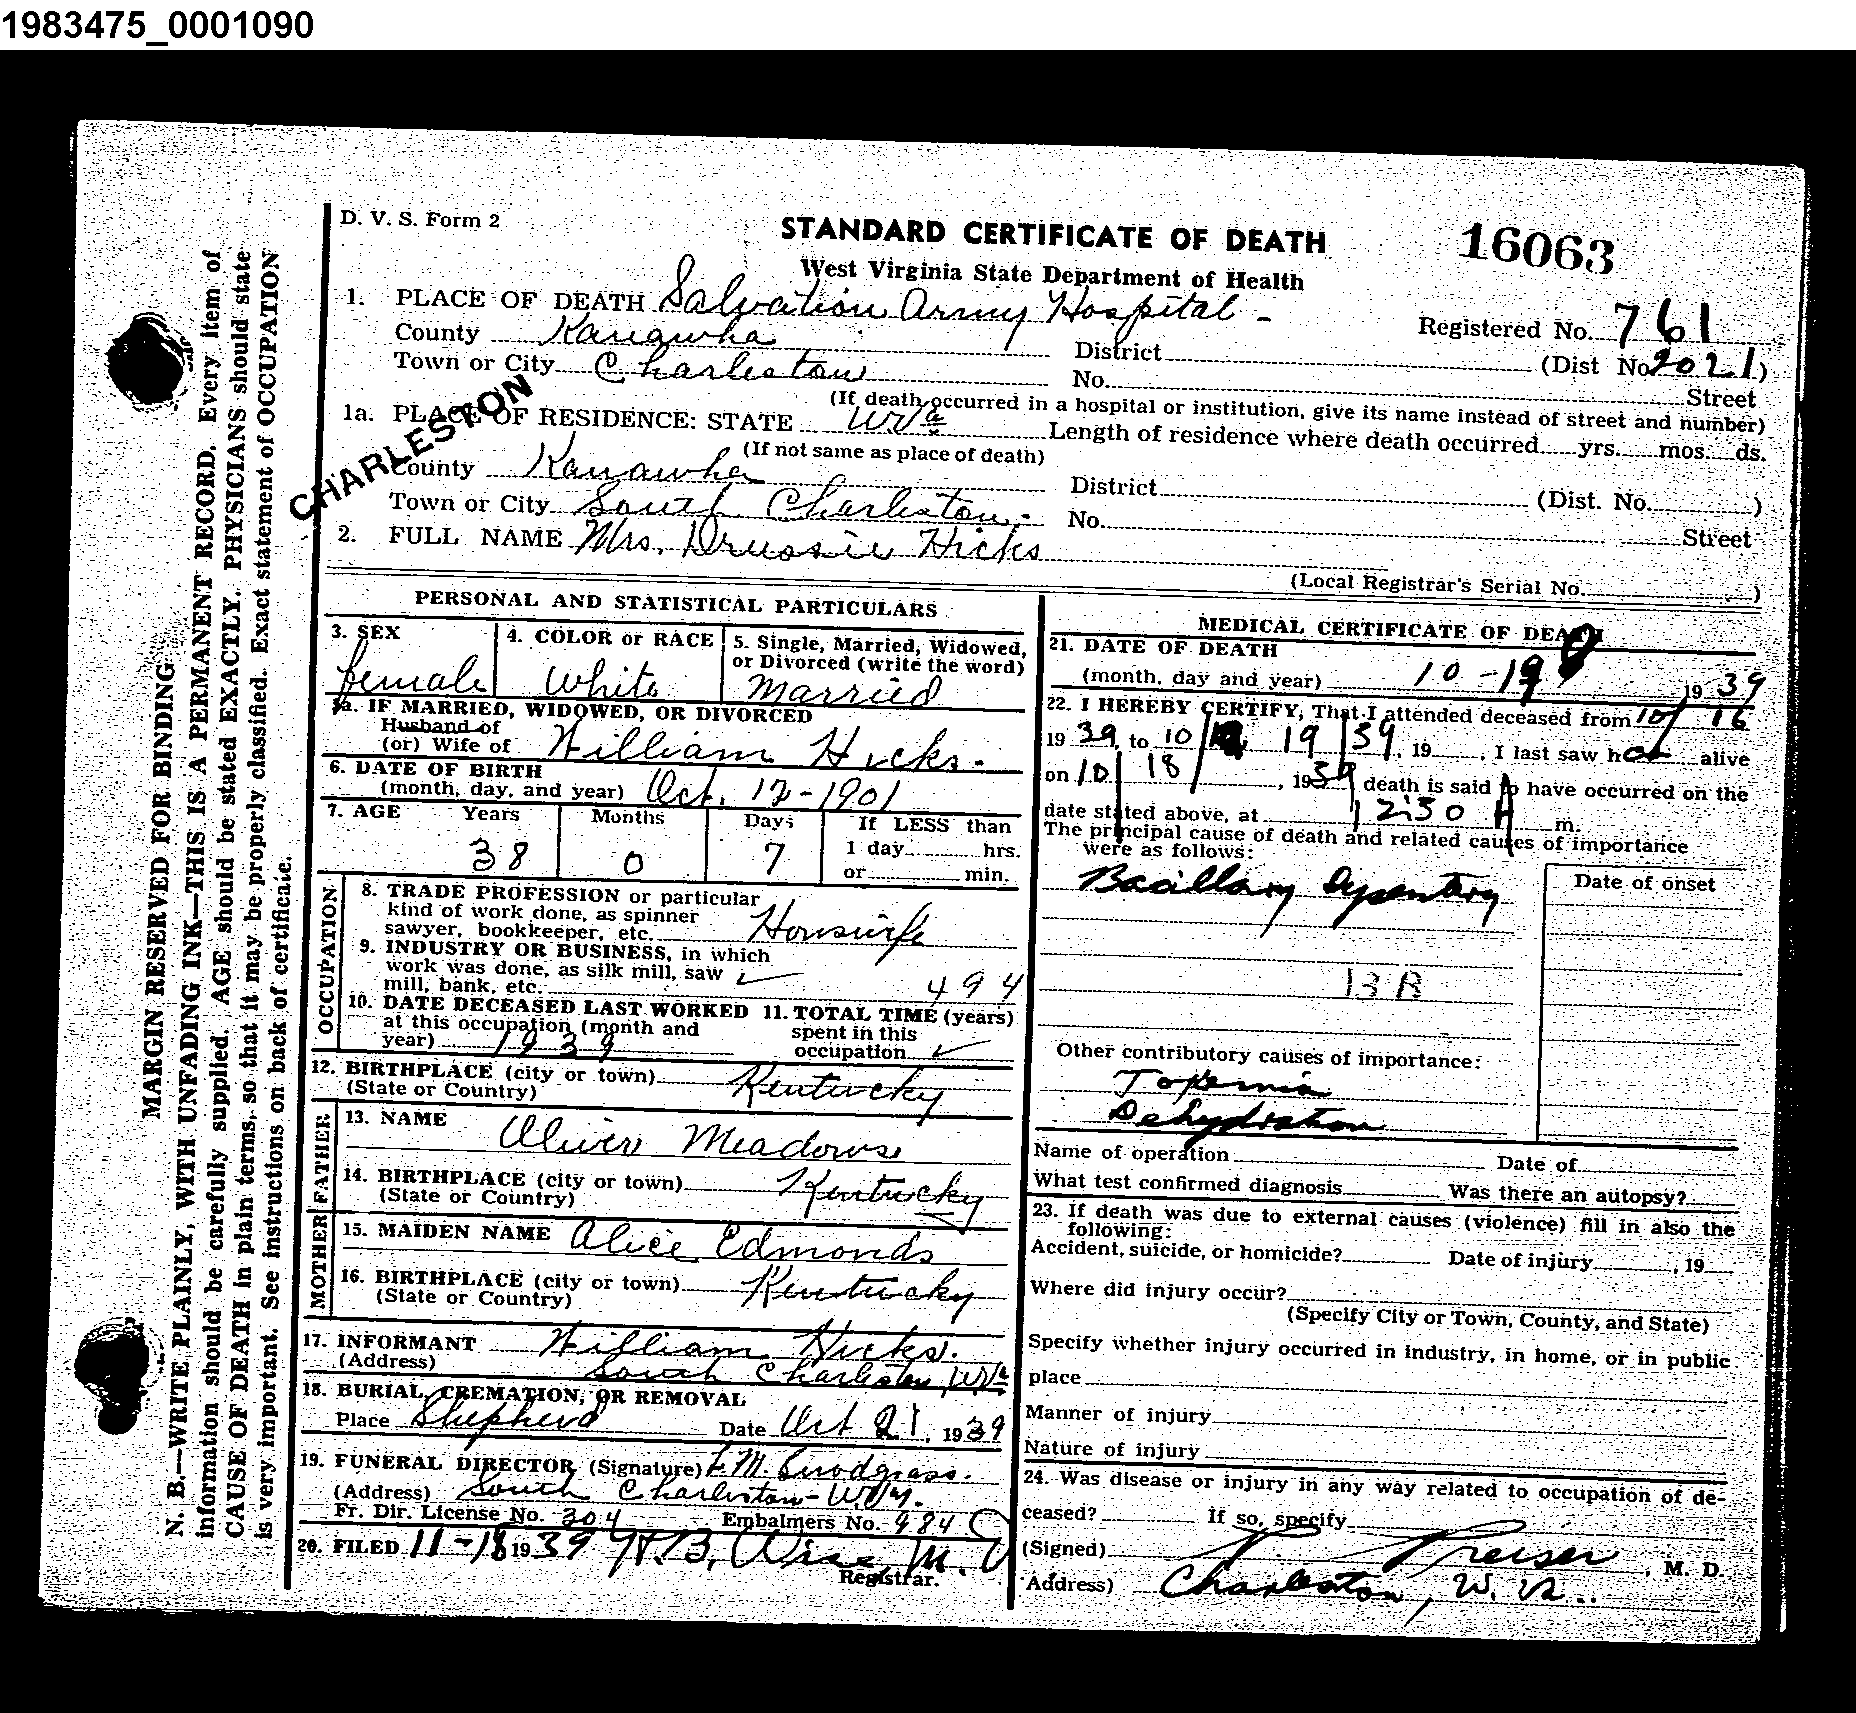 1983475_0001090
D. V. S. Form 2
STANDARD CERTIFICATE OF DEATH
16063
West Virginia State Department of Health
1. PLACE OF DEATH Salvation Army Hospital -
Registered No. 761
County Kanawha
District (Dist No. 2021)
Town or City Charleston
No. Street
(If death occurred in a hospital or institution, give its name instead of street and number)
CHARLESTON
1a. PLACE OF RESIDENCE: STATE W Va
Length of residence where death occurred yrs. mos. ds.
(If not same as place of death)
County Kanawha
District (Dist. No. )
Town or City South Charleston.
No. Street
2. FULL NAME Mrs. Drussie Hicks
(Local Registrar's Serial No. )
PERSONAL AND STATISTICAL PARTICULARS
3. SEX
female
4. COLOR or RACE
White
5. Single, Married, Widowed,
or Divorced (write the word)
Married
5a. IF MARRIED, WIDOWED, OR DIVORCED
Husband of
(or) Wife of William Hicks.
6. DATE OF BIRTH
(month, day, and year) Oct. 12-1901
7. AGE Years Months Days If LESS than
38 0 7 1 day hrs.
or min.
OCCUPATION
8. TRADE PROFESSION or particular
kind of work done, as spinner
sawyer, bookkeeper, etc. Houswife
9. INDUSTRY OR BUSINESS, in which
work was done, as silk mill, saw
mill, bank, etc. 494
10. DATE DECEASED LAST WORKED
at this occupation (month and
year) 1939
11. TOTAL TIME (years)
spent in this
occupation
12. BIRTHPLACE (city or town) Kentucky
(State or Country)
FATHER
13. NAME Oliver Meadows
14. BIRTHPLACE (city or town) Kentucky
(State or Country)
MOTHER
15. MAIDEN NAME Alice Edmonds
16. BIRTHPLACE (city or town) Kentucky
(State or Country)
17. INFORMANT William Hicks.
(Address) South Charleston, W Va
18. BURIAL, CREMATION, OR REMOVAL
Place Shepherd Date Oct 21, 1939
19. FUNERAL DIRECTOR (Signature) F. M. Snodgrass.
(Address) South Charleston - W. Va.
Fr. Dir. License No. 304 Embalmers No. 984
20. FILED 11-18 1939 H. B. Wise M. D
Registrar.
MEDICAL CERTIFICATE OF DEATH
21. DATE OF DEATH
(month, day and year) 10-19 1939
22. I HEREBY CERTIFY, That I attended deceased from 10/16
1939, to 10/ 19/39, 19 , I last saw her alive
on 10/18/, 1939 death is said to have occurred on the
date stated above, at 12:30 A m.
The principal cause of death and related causes of importance
were as follows:
Date of onset
Bacillary Dysentery
13 B
Other contributory causes of importance:
Toxemia
Dehydration
Name of operation Date of
What test confirmed diagnosis Was there an autopsy?
23. If death was due to external causes (violence) fill in also the
following:
Accident, suicide, or homicide? Date of injury , 19
Where did injury occur?
(Specify City or Town, County, and State)
Specify whether injury occurred in industry, in home, or in public
place
Manner of injury
Nature of injury
24. Was disease or injury in any way related to occupation of de-
ceased? If so, specify
(Signed) P. Preiser, M. D.
Address) Charleston, W. Va.
MARGIN RESERVED FOR BINDING
N. B.—WRITE PLAINLY, WITH UNFADING INK—THIS IS A PERMANENT RECORD. Every item of
information should be carefully supplied. AGE should be stated EXACTLY. PHYSICIANS should state
CAUSE OF DEATH in plain terms, so that it may be properly classified. Exact statement of OCCUPATION
is very important. See instructions on back of certificate.